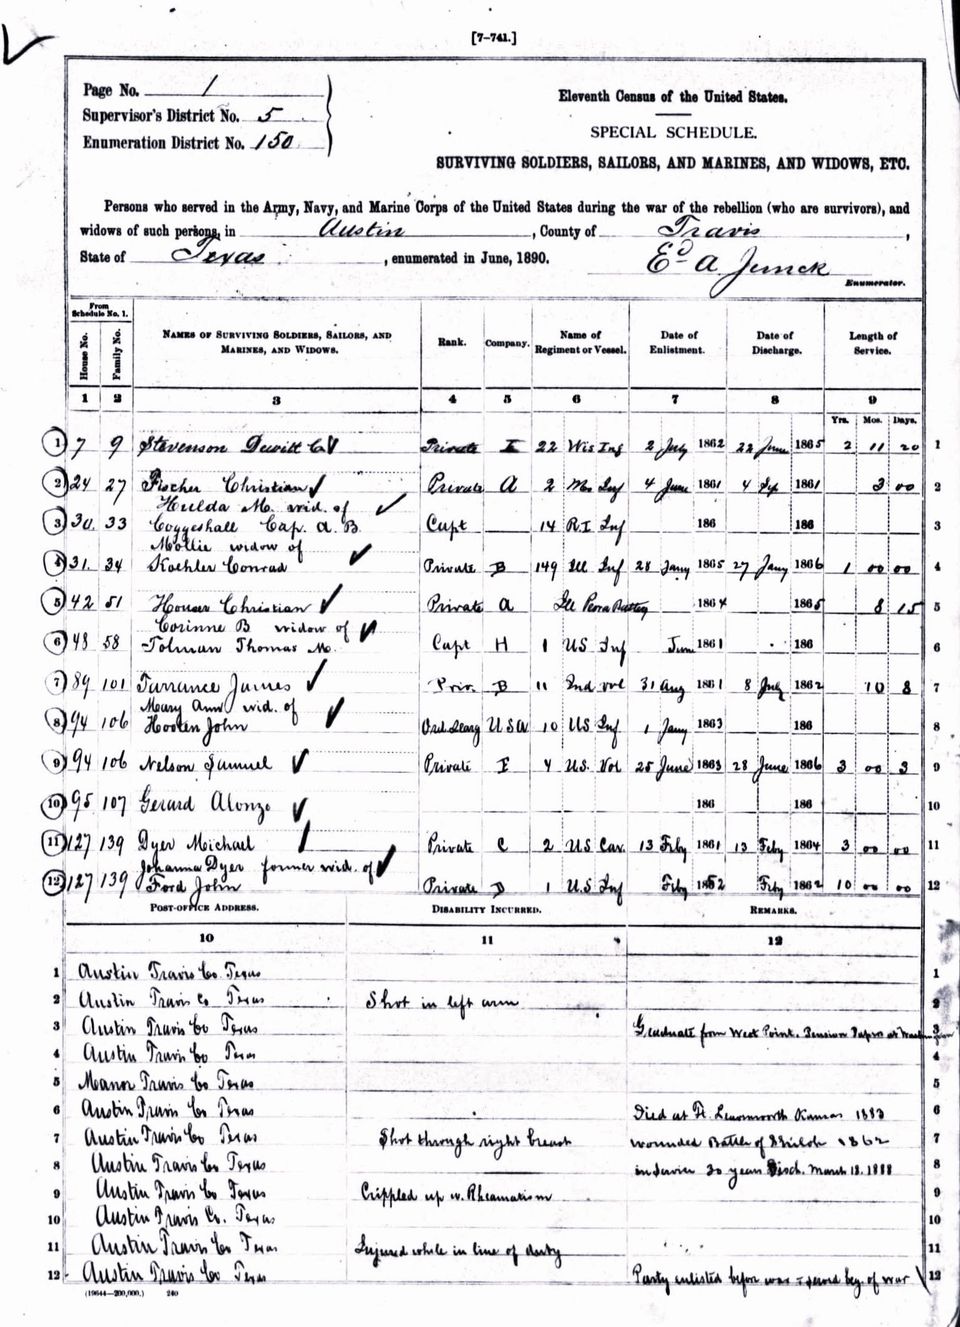 [7-741.]
Page No. 1
Supervisor's District No. 5
Enumeration District No. 150
Eleventh Census of the United States.
SPECIAL SCHEDULE.
SURVIVING SOLDIERS, SAILORS, AND MARINES, AND WIDOWS, ETC.
Persons who served in the Army, Navy, and Marine Corps of the United States during the war of the rebellion (who are survivors), and
widows of such persons, in Austin, County of Travis,
State of Texas, enumerated in June, 1890. Ed A
Enumerator.
From Schedule No. 1.
House No. Family No. NAMES OF SURVIVING SOLDIERS, SAILORS, AND MARINES, AND WIDOWS. Rank. Company. Name of Regiment or Vessel. Date of Enlistment. Date of Discharge. Length of Service.
1 2 3 4 5 6 7 8 9
Yrs. Mos. Days.
1 7 9 Stevenson Dewitt C Private I 22 Wis Inf 2 July 1862 22 June 1865 2 11 20 1
2 24 27 Fischer Christian Private A 2 Mo Inf 4 June 1861 4 1861 3 00 2
Hulda M. wid. of
3 30 33 Coggeshall Cap. A. B. Capt 14 R.I Inf 186 186 3
Mollie widow of
4 31 34 Koehler Conrad Private B 149 Ill Inf 28 Jany 1865 27 Jany 1866 1 00 00 4
5 42 51 Houser Christian Private A Ill 1864 1865 8 15 5
Corinne B widow of
6 48 58 Tolman Thomas M. Capt H 1 US Inf June 1861 186 6
7 89 101 Torrance James Priv. B 11 Ind vol 31 Aug 1861 8 July 1862 10 8 7
Mary Ann wid. of
8 94 106 Hooten John Ord Searg U S A 10 US Inf 1 Jany 1863 186 8
9 94 106 Nelson Samuel Private E 4 U.S. Vol 25 June 1863 28 June 1866 3 00 3 9
10 95 107 Gerard Alonzo 186 186 10
11 127 139 Dyer Michael Private C 2 US Cav. 13 Feby 1861 13 Feby 1864 3 00 00 11
Johanna Dyer former wid. of
12 127 139 Ford John Private D 1 U.S Inf Feby 1852 Feby 1862 10 00 00 12
POST-OFFICE ADDRESS. DISABILITY INCURRED. REMARKS.
10 11 12
1 Austin Travis Co. Texas 1
2 Austin Travis Co Texas Shot in left arm 2
3 Austin Travis Co Texas Graduate from West Point. Pension Papers at 3
4 Austin Travis Co Texas 4
5 Manor Travis Co Texas 5
6 Austin Travis Co Texas Died at Ft. Leavenworth Kansas 1883 6
7 Austin Travis Co Texas Shot through right breast wounded Battle of Shiloh 1862 7
8 Austin Travis Co Texas in Service 30 years Disch. March 18. 1888 8
9 Austin Travis Co Texas Crippled up w. Rheumatism 9
10 Austin Travis Co. Texas 10
11 Austin Travis Co Texas Injured while in line of duty 11
12 Austin Travis Co Texas Party enlisted before war & served beg. of war 12
(19644—200,000.) 240